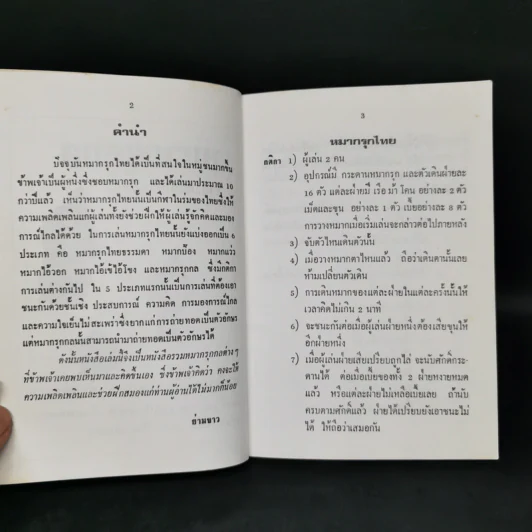 2
คำนำ
ปัจจุบันหมากรุกไทยได้เป็นที่สนใจในหมู่ชนมากขึ้น
ข้าพเจ้าเป็นผู้หนึ่งซึ่งชอบหมากรุก และได้เล่นมาประมาณ 10
กว่าปีแล้ว เห็นว่าหมากรุกไทยนั้นเป็นกีฬาในร่มของไทยซึ่งให้
ความเพลิดเพลินแก่ผู้เล่นทั้งยังช่วยฝึกให้ผู้เล่นรู้จักคิดและมอง
การณ์ไกลได้ด้วย ในการเล่นหมากรุกไทยนั้นยังแบ่งออกเป็น 6
ประเภท คือ หมากรุกไทยธรรมดา หมากน้อง หมากแวง
หมากไอ้วอก หมากไอ้เข้ไอ้โขง และหมากรุกกล ซึ่งมีกติกา
การเล่นต่างกันไป ใน 5 ประเภทแรกนั้นเป็นการเล่นที่ต้องเอา
ชนะกันด้วยชั้นเชิง ประสบการณ์ ความคิด การมองการณ์ไกล
และความใจเย็นไม่สะเพร่าซึ่งยากแก่การถ่ายทอดเป็นตัวอักษร
แต่หมากรุกกลนั้นสามารถนำมาถ่ายทอดเป็นตัวอักษรได้
ดังนั้นหนังสือเล่มนี้จึงเป็นหนังสือรวมหมากรุกกลต่างๆ
ที่ข้าพเจ้าเคยพบเห็นมาและคิดขึ้นเอง ซึ่งข้าพเจ้าคิดว่า คงจะให้
ความเพลิดเพลินและช่วยฝึกสมองแก่ท่านผู้อ่านได้ไม่มากก็น้อย
3
หมากรุกไทย
กติกา 1) ผู้เล่น 2 คน
2) อุปกรณ์มี กระดานหมากรุก และตัวเดินฝ่ายละ
16 ตัว แต่ละฝ่ายมี เรือ ม้า โคน อย่างละ 2 ตัว
เม็ดและขุน อย่างละ 1 ตัว เบี้ยอย่างละ 8 ตัว
การวางหมากเมื่อเริ่มเล่นจะกล่าวต่อไปภายหลัง
3) จับตัวไหนเดินตัวนั้น
4) เมื่อวางหมากตาไหนแล้ว ถือว่าเดินตานั้นเลย
ห้ามเปลี่ยนตัวเดิน
5) การเดินหมากของแต่ละฝ่ายในแต่ละครั้งนั้นให้
เวลาคิดไม่เกิน 2 นาที
6) จะชนะกันต่อเมื่อผู้เล่นฝ่ายหนึ่งต้องเสียขุนให้
อีกฝ่ายหนึ่ง
7) เมื่อผู้เล่นฝ่ายเสียเปรียบถูกไล่ จะนับศักดิ์กระ
ดานได้ ต่อเมื่อเบี้ยของทั้ง 2 ฝ่ายหงายหมด
แล้ว หรือแต่ละฝ่ายไม่เหลือเบี้ยเลย ถ้านับ
ครบตามศักดิ์แล้ว ฝ่ายได้เปรียบยังเอาชนะไม่
ได้ ให้ถือว่าเสมอกัน